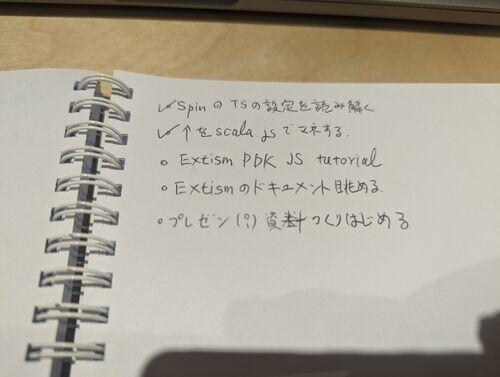 ✓ SpinのTSの設定を読み解く
✓ ↑をscala.jsでマネする.
• Extism PDK JS tutorial
• Extismのドキュメント眺める.
• プレゼン(?)資料つくりはじめる